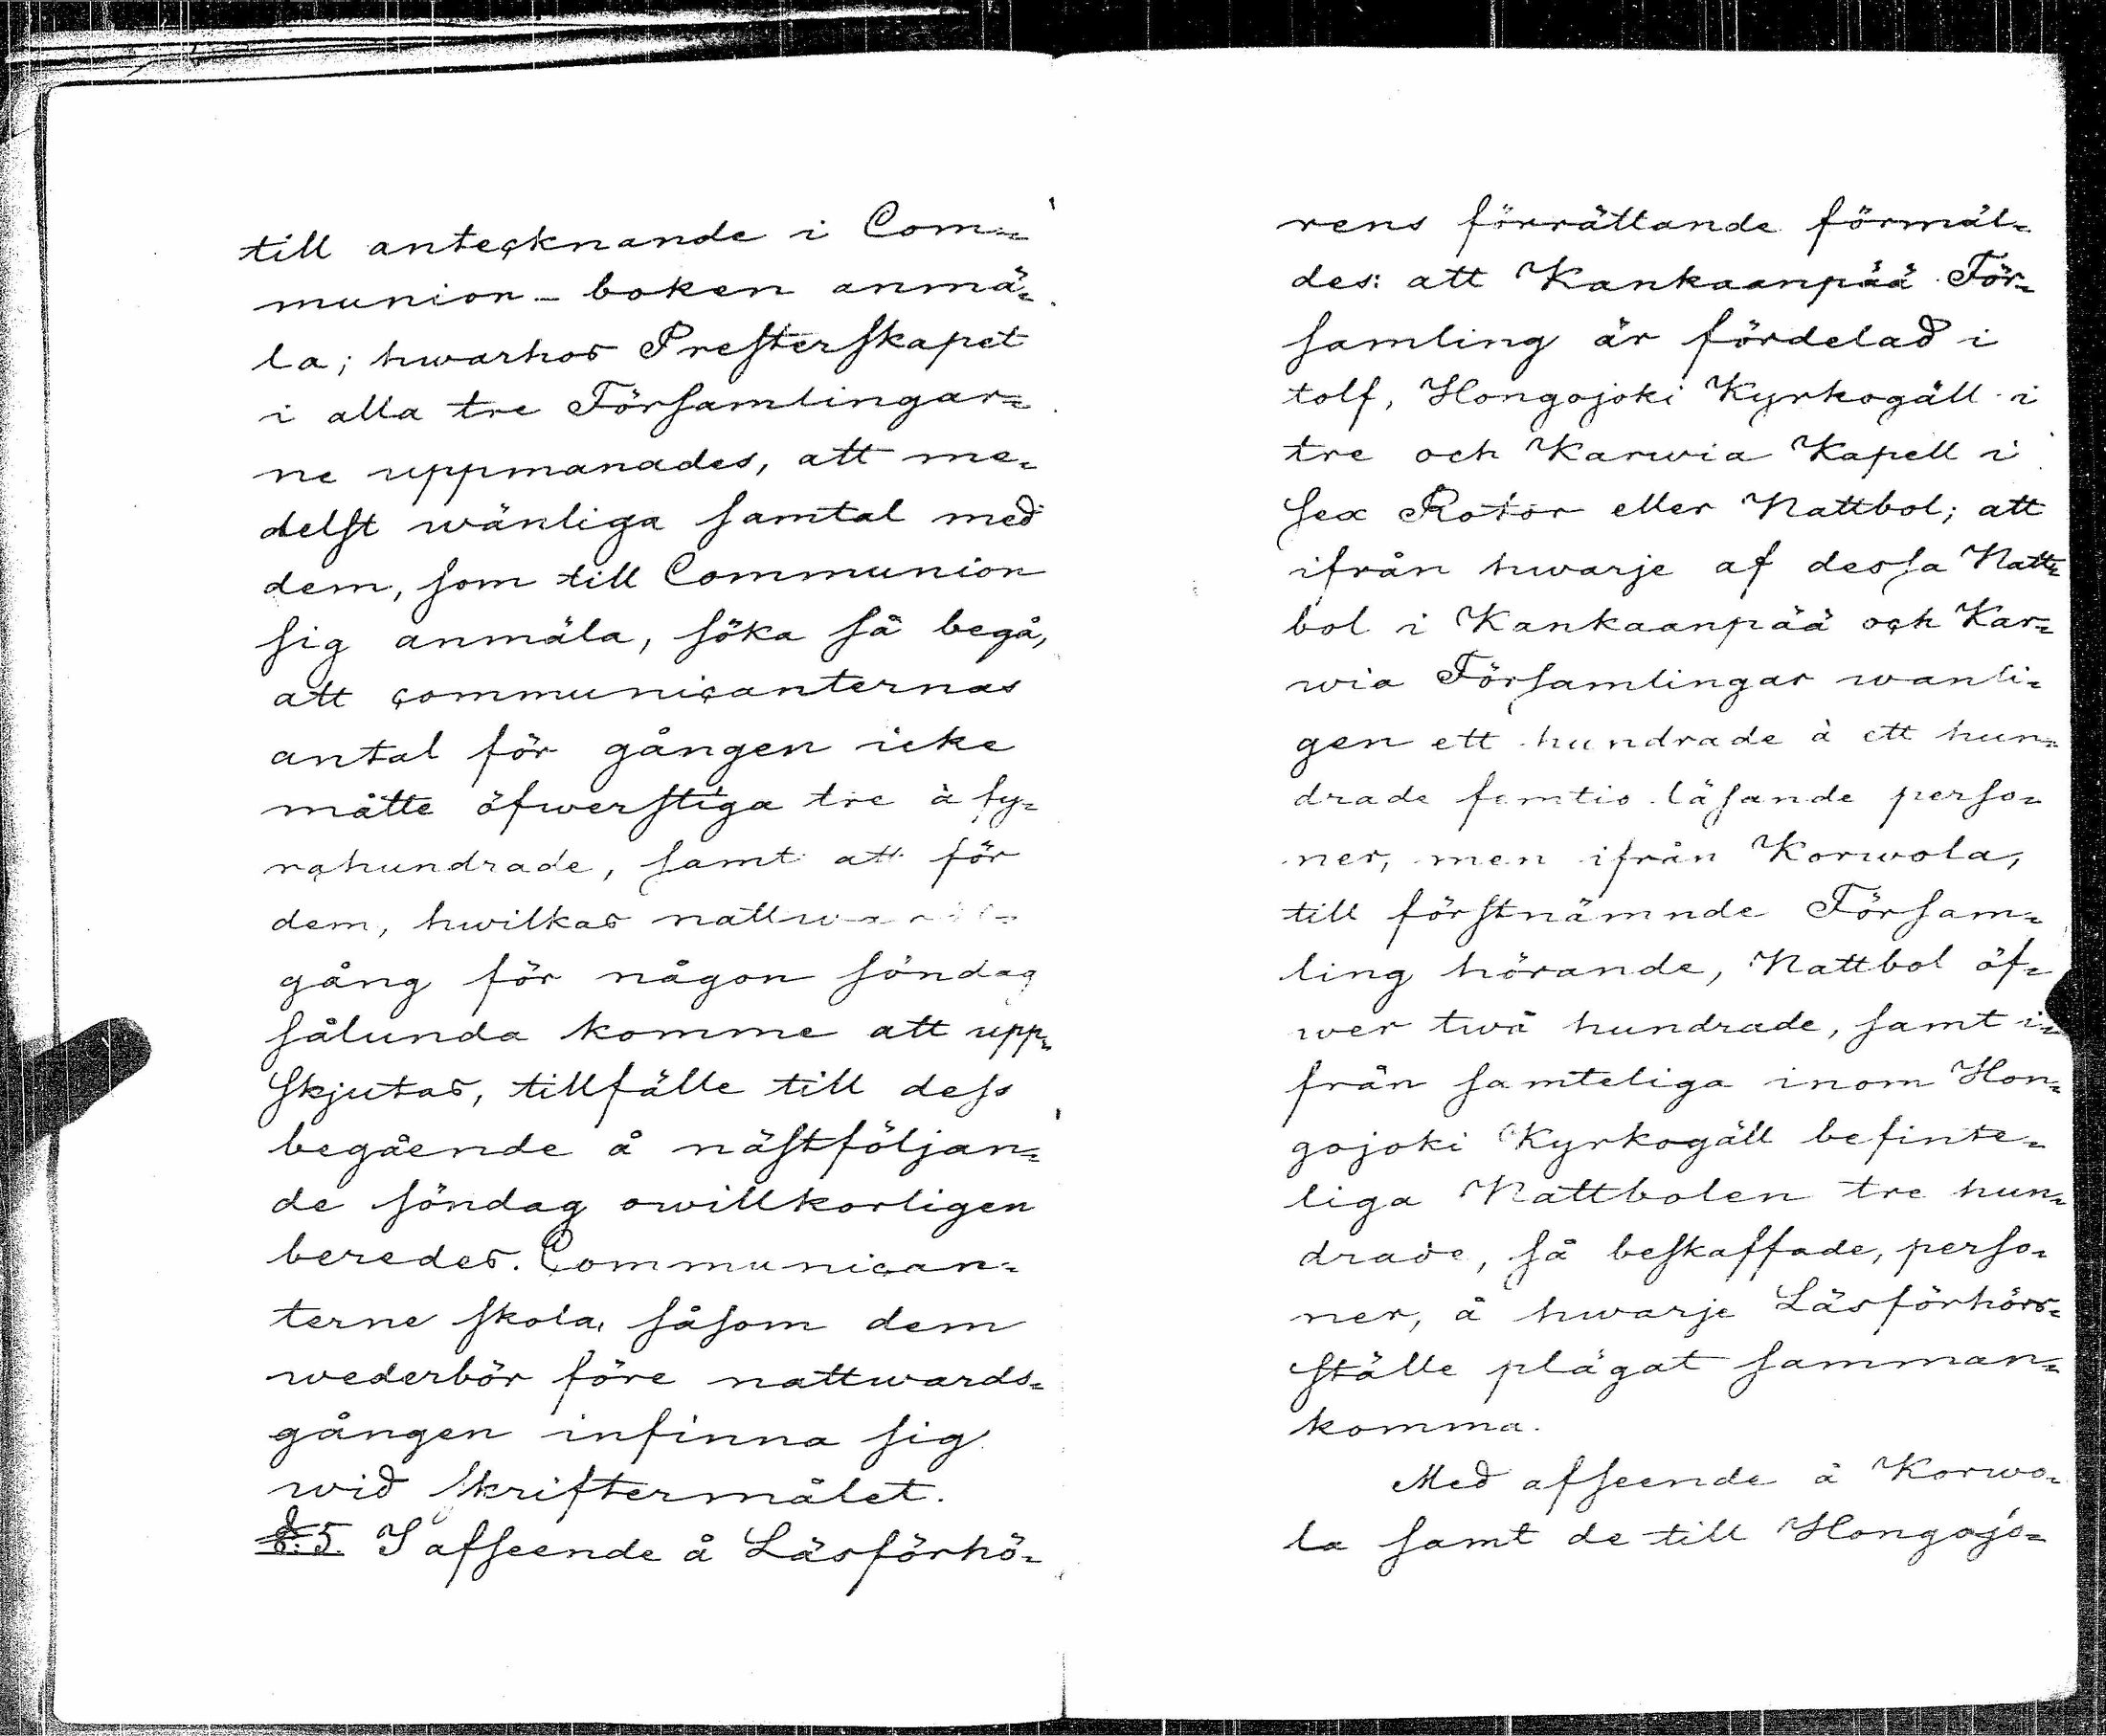 till antecknande i Com=
munion-boken anmä=
la; hwarhos Presterskapet
i alla tre Församlingar=
ne uppmanades, att me=
delst wänliga samtal med
dem, som till Communion
sig anmäla, söka få begå,
att communicanternas
antal för gången icke
måtte öfwerstiga tre à fy=
rahundrade, samt att för
dem, hwilkas
gång för någon söndag
sålunda komme att upp=
skjutas, tillfälle till dess
begående å nästföljan=
de söndag owillkorligen
beredes. Communican=
terne skola, såsom dem
wederbör före nattwards=
gången infinna sig
wid skriftermålet.
§. 5. I afseende å Läsförhö=
rens förrättande förmäl=
des: att Kankaanpää För=
samling är fördelad i
tolf, Hongojoki Kyrkogäll i
tre och Karwia Kapell i
sex Rotor eller Nattbol; att
ifrån hwarje af dessa Natt=
bol i Kankaanpää och Kar=
wia Församlingar wanli=
gen ett hundrade à ett hun=
drade femtio läsande perso=
ner, men ifrån Korwola,
till förstnämnde Försam=
ling hörande, Nattbol öf=
wer twå hundrade, samt i=
från samteliga inom Hon=
gojoki Kyrkogäll befinte=
liga Nattbolen tre hun=
drade, så beskaffade, perso=
ner, å hwarje Läsförhörs=
ställe plägat samman=
komma.
Med afseende å Korwo=
la samt de till Hongojo=